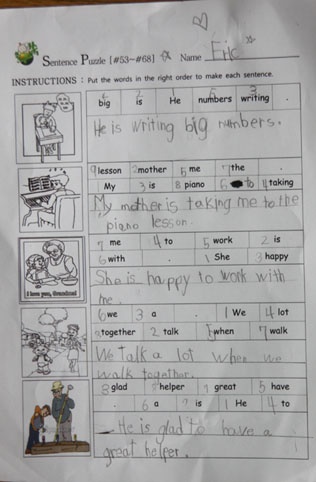 Sentence Puzzle [#53~#68] Name Eric
INSTRUCTIONS : Put the words in the right order to make each sentence.
big is He numbers writing .
He is writing big numbers.
9 lesson 2 mother 5 me 7 the .
My 3 is 8 piano 6 to 4 taking
My mother is taking me to the
piano lesson.
7 me 4 to 5 work 2 is
6 with . 1 She 3 happy
She is happy to work with
me.
I love you, Grandma!
6 we 3 a . 1 We 4 lot
8 together 2 talk 5 when 7 walk
We talk a lot when we
walk together.
3 glad 8 helper 7 great 5 have
. 6 a 2 is 1 He 4 to
He is glad to have a
great helper.